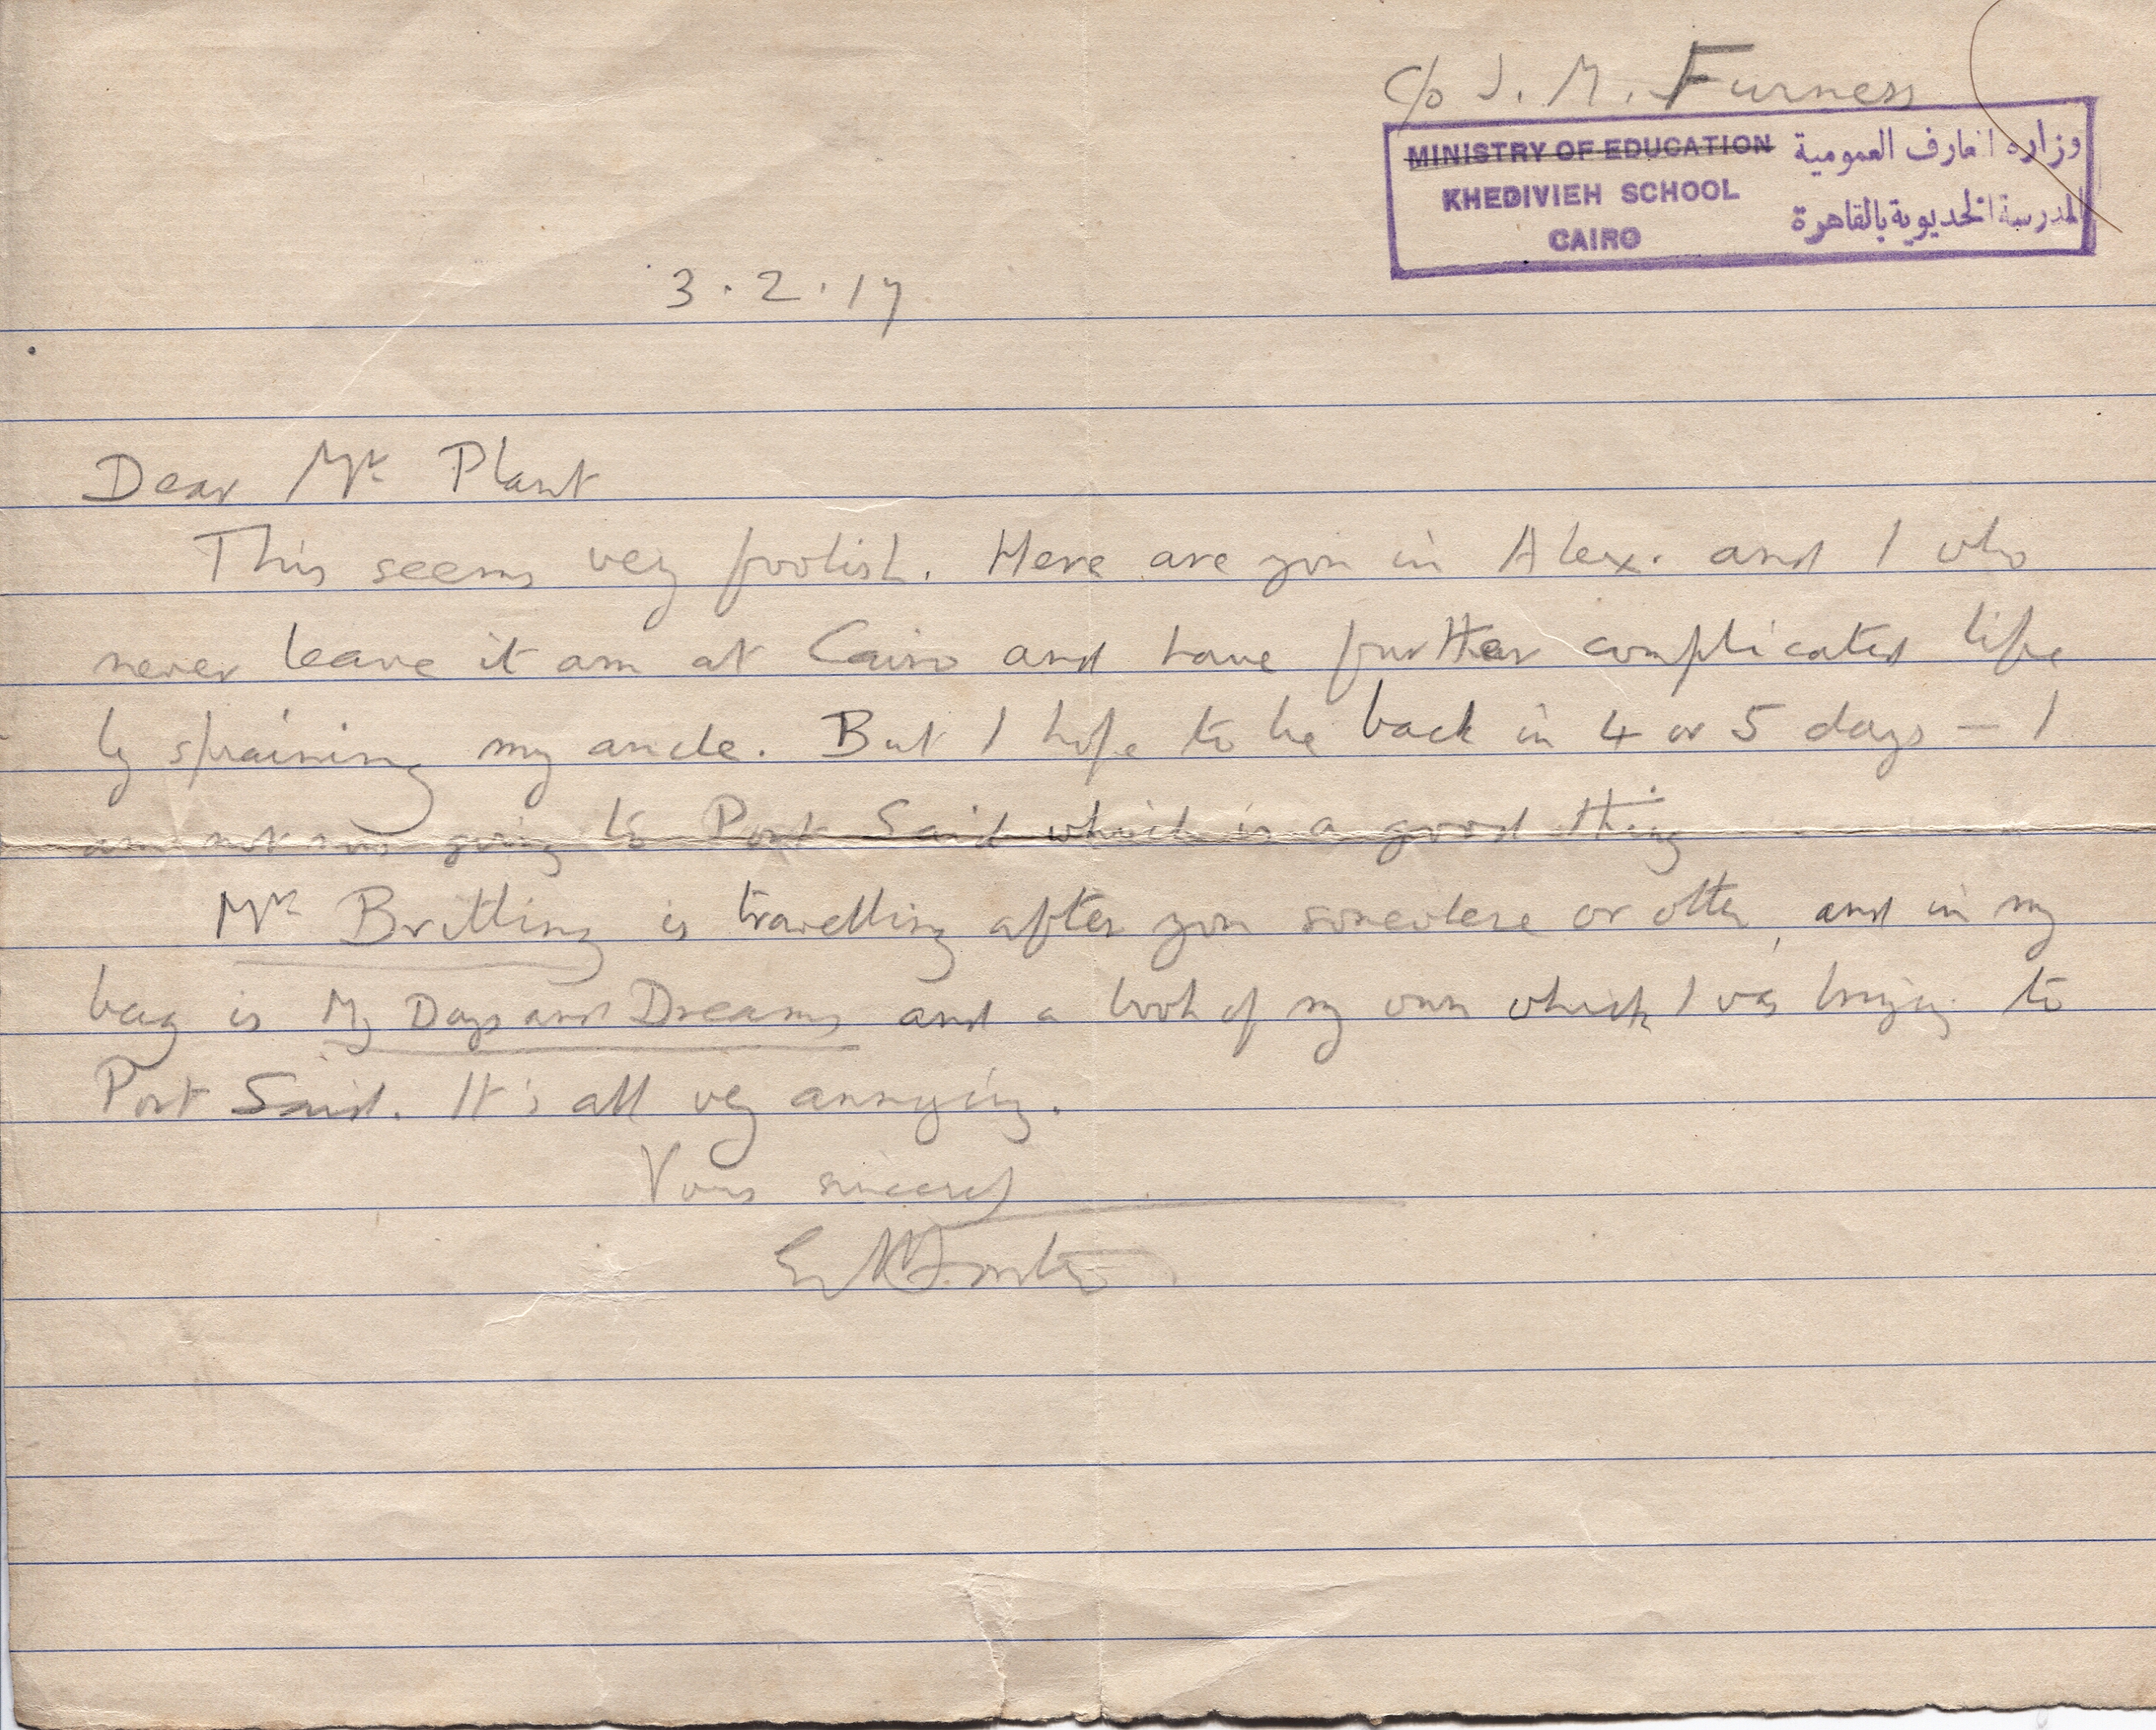 c/o J. M. Furness
MINISTRY OF EDUCATION وزارة المعارف العمومية
KHEDIVIEH SCHOOL المدرسة الخديوية بالقاهرة
CAIRO
3.2.17
Dear Mr Plant
This seems very foolish. Here are you in Alex. and I who
never leave it am at Cairo and have further complicated life
by spraining my ancle. But I hope to be back in 4 or 5 days — I
am not now going to Port Said which is a good thing
Mr Britling is travelling after you somewhere or other, and in my
bag is My Days and Dreams and a book of my own which I was bringing to
Port Said. It's all very annoying.
Yours sincerely
EMForster